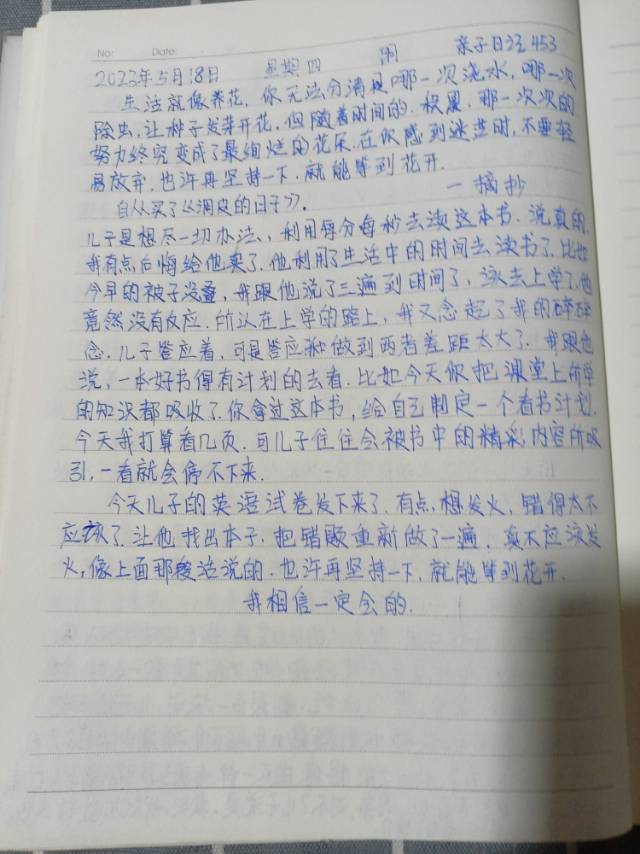 No: Date: 亲子日记453
2023年5月18日 星期四 阴
生活就像养花，你无法分清是哪一次浇水，哪一次
除虫，让种子发芽开花，但随着时间的.积累.那一次次的
努力终究变成了最绚烂的花朵.在你感到迷茫时，不要轻
易放弃.也许再坚持一下.就能等到花开.
一摘抄
自从买了《调皮的日子》.
儿子是想尽一切办法、，利用每分每秒去读这本书.说真的.
我有点后悔给他买了.他利用了生活中的时间去读书了.比如
今早的被子没叠，我跟他说了三遍到时间了，该去上学了.他
竟然没有反应.所认在上学的路上，我又念起了我的碎碎
念.儿子答应着，可是答应和做到两者差距太大了.我跟他
说，一本好书得有计划的去看.比如今天你把课堂上所学
的知识都吸收了.你拿过这本书，给自己制定一个看书计划.
今天我打算看几页.可儿子往往会被书中的精彩内容所吸
引，一看就会停不下来.
今天儿子的英语试卷发下来了.有点.想发火，错得太不
应该了.让他找出本子.把错题重新做了一遍.真不应该发
火，像上面那段话说的.也许再坚持一下.就能等到花开.
我相信一定会的.